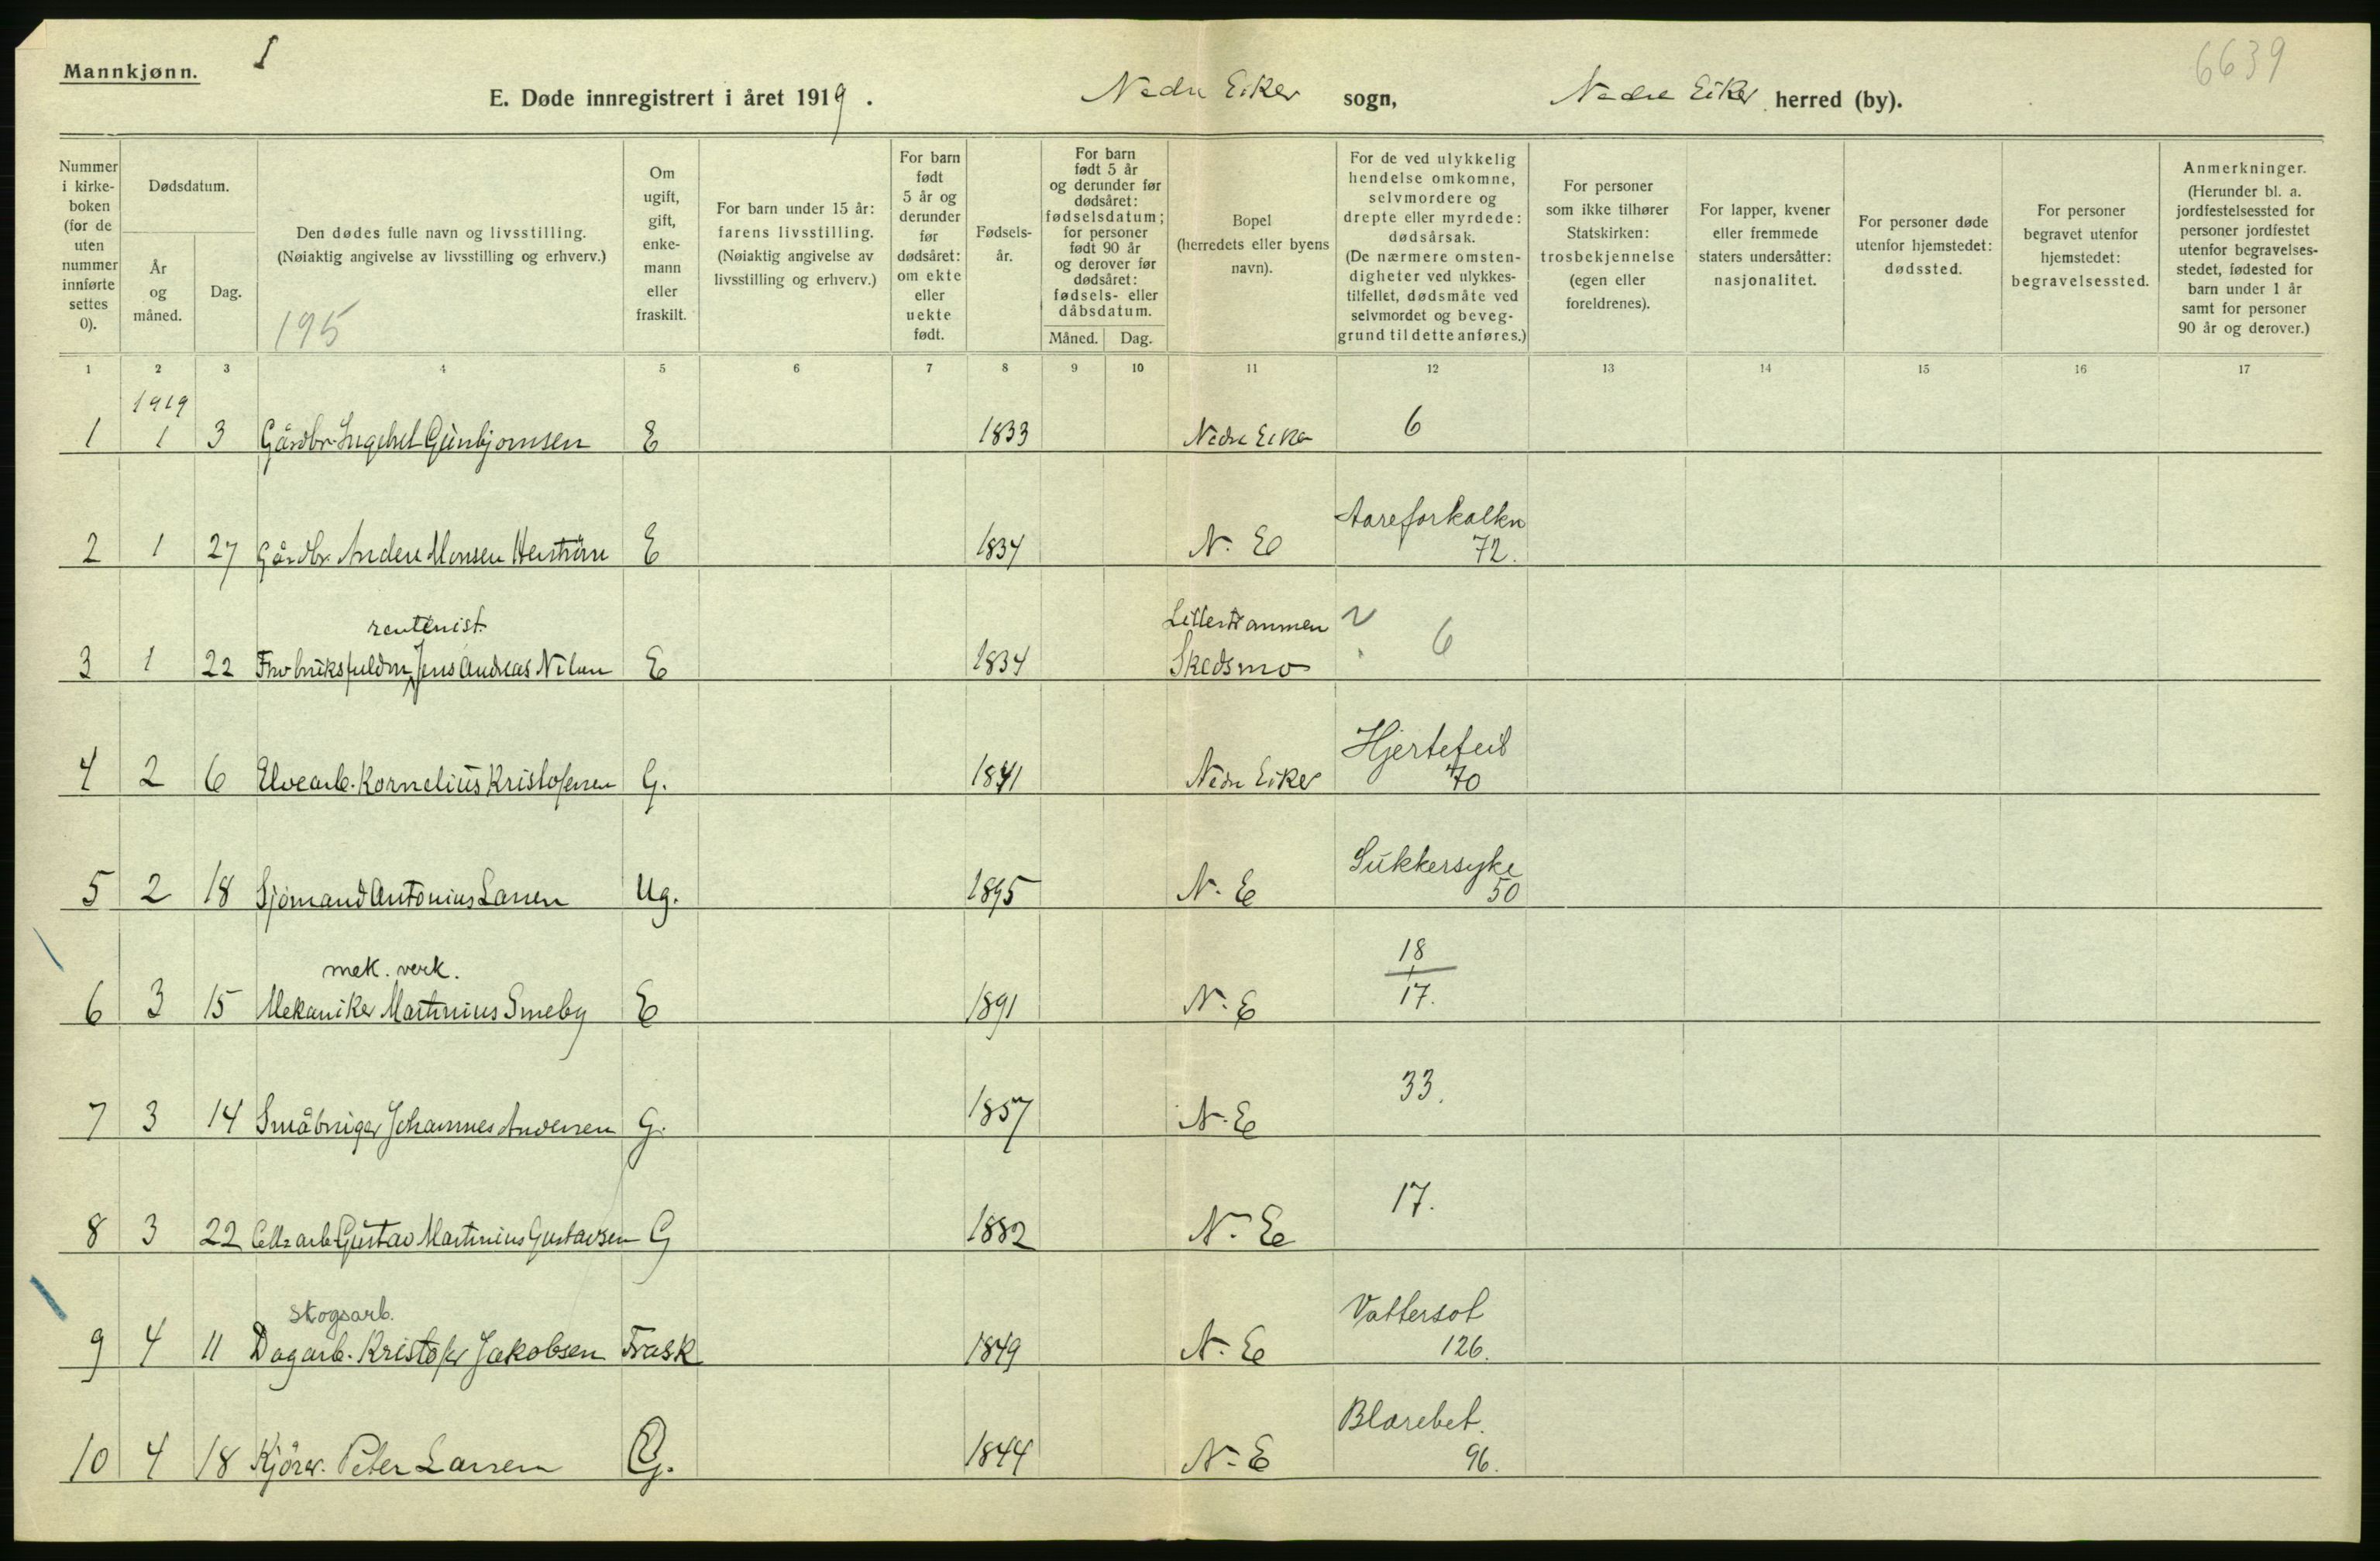 Mannkjønn.
I
6639
E. Døde innregistrert i året 1919.
Nedre Eiker sogn,
Nedre Eiker herred (by).
Nummer i kirke-boken (for de uten nummer innførte settes 0).
Dødsdatum.
År og måned.
Dag.
Den dødes fulle navn og livsstilling.
(Nøiaktig angivelse av livsstilling og erhverv.)
195
Om ugift, gift, enke-mann eller fraskilt.
For barn under 15 år: farens livsstilling. (Nøiaktig angivelse av livsstilling og erhverv.)
For barn født 5 år og derunder før dødsåret: om ekte eller uekte født.
Fødsels-år.
For barn født 5 år og derunder før dødsåret: fødselsdatum; for personer født 90 år og derover før dødsåret: fødsels- eller dåbsdatum.
Måned. Dag.
Bopel (herredets eller byens navn).
For de ved ulykkelig hendelse omkomne, selvmordere og drepte eller myrdede: dødsårsak. (De nærmere omsten-digheter ved ulykkes-tilfellet, dødsmåte ved selvmordet og beveg-grund til dette anføres.)
For personer som ikke tilhører Statskirken: trosbekjennelse (egen eller foreldrenes).
For lapper, kvener eller fremmede staters undersåtter: nasjonalitet.
For personer døde utenfor hjemstedet: dødssted.
For personer begravet utenfor hjemstedet: begravelsessted.
Anmerkninger. (Herunder bl. a. jordfestelsessted for personer jordfestet utenfor begravelses-stedet, fødested for barn under 1 år samt for personer 90 år og derover.)
1 2 3 4 5 6 7 8 9 10 11 12 13 14 15 16 17
1919
1 1 3 Gårdbr. Ingebret Gunbjornsen E 1833 Nedre Eiker 6
Aareforkalkn
2 1 27 Gårdbr. Anders Monsen E 1834 N. E 72.
rentenist. Lillestrømmen
3 1 22 Jens Andreas E 1834 Skedsmo 6
Hjertefeil
4 2 6 Elvearb. Kornelius Kristofersen G. 1841 Nedre Eiker 70
Sukkersyke
5 2 18 Sjömand Antonius Larsen Ug. 1895 N. E 50
mek. verk. 18
6 3 15 Mekaniker Martinius Smeby E 1891 N. E 17.
33.
7 3 14 Småbruger Johannes Andersen G. 1857 N. E
17.
8 3 22 Cell. arb Gustav Martinius Gustavsen G 1882 N. E
skogsarb. Vattersot
9 4 11 Dagarb. Kristofer Jakobsen Frask 1849 N. E 126.
Blærebet.
10 4 18 Kjörer. Peter Larsen G. 1844 N. E 96.